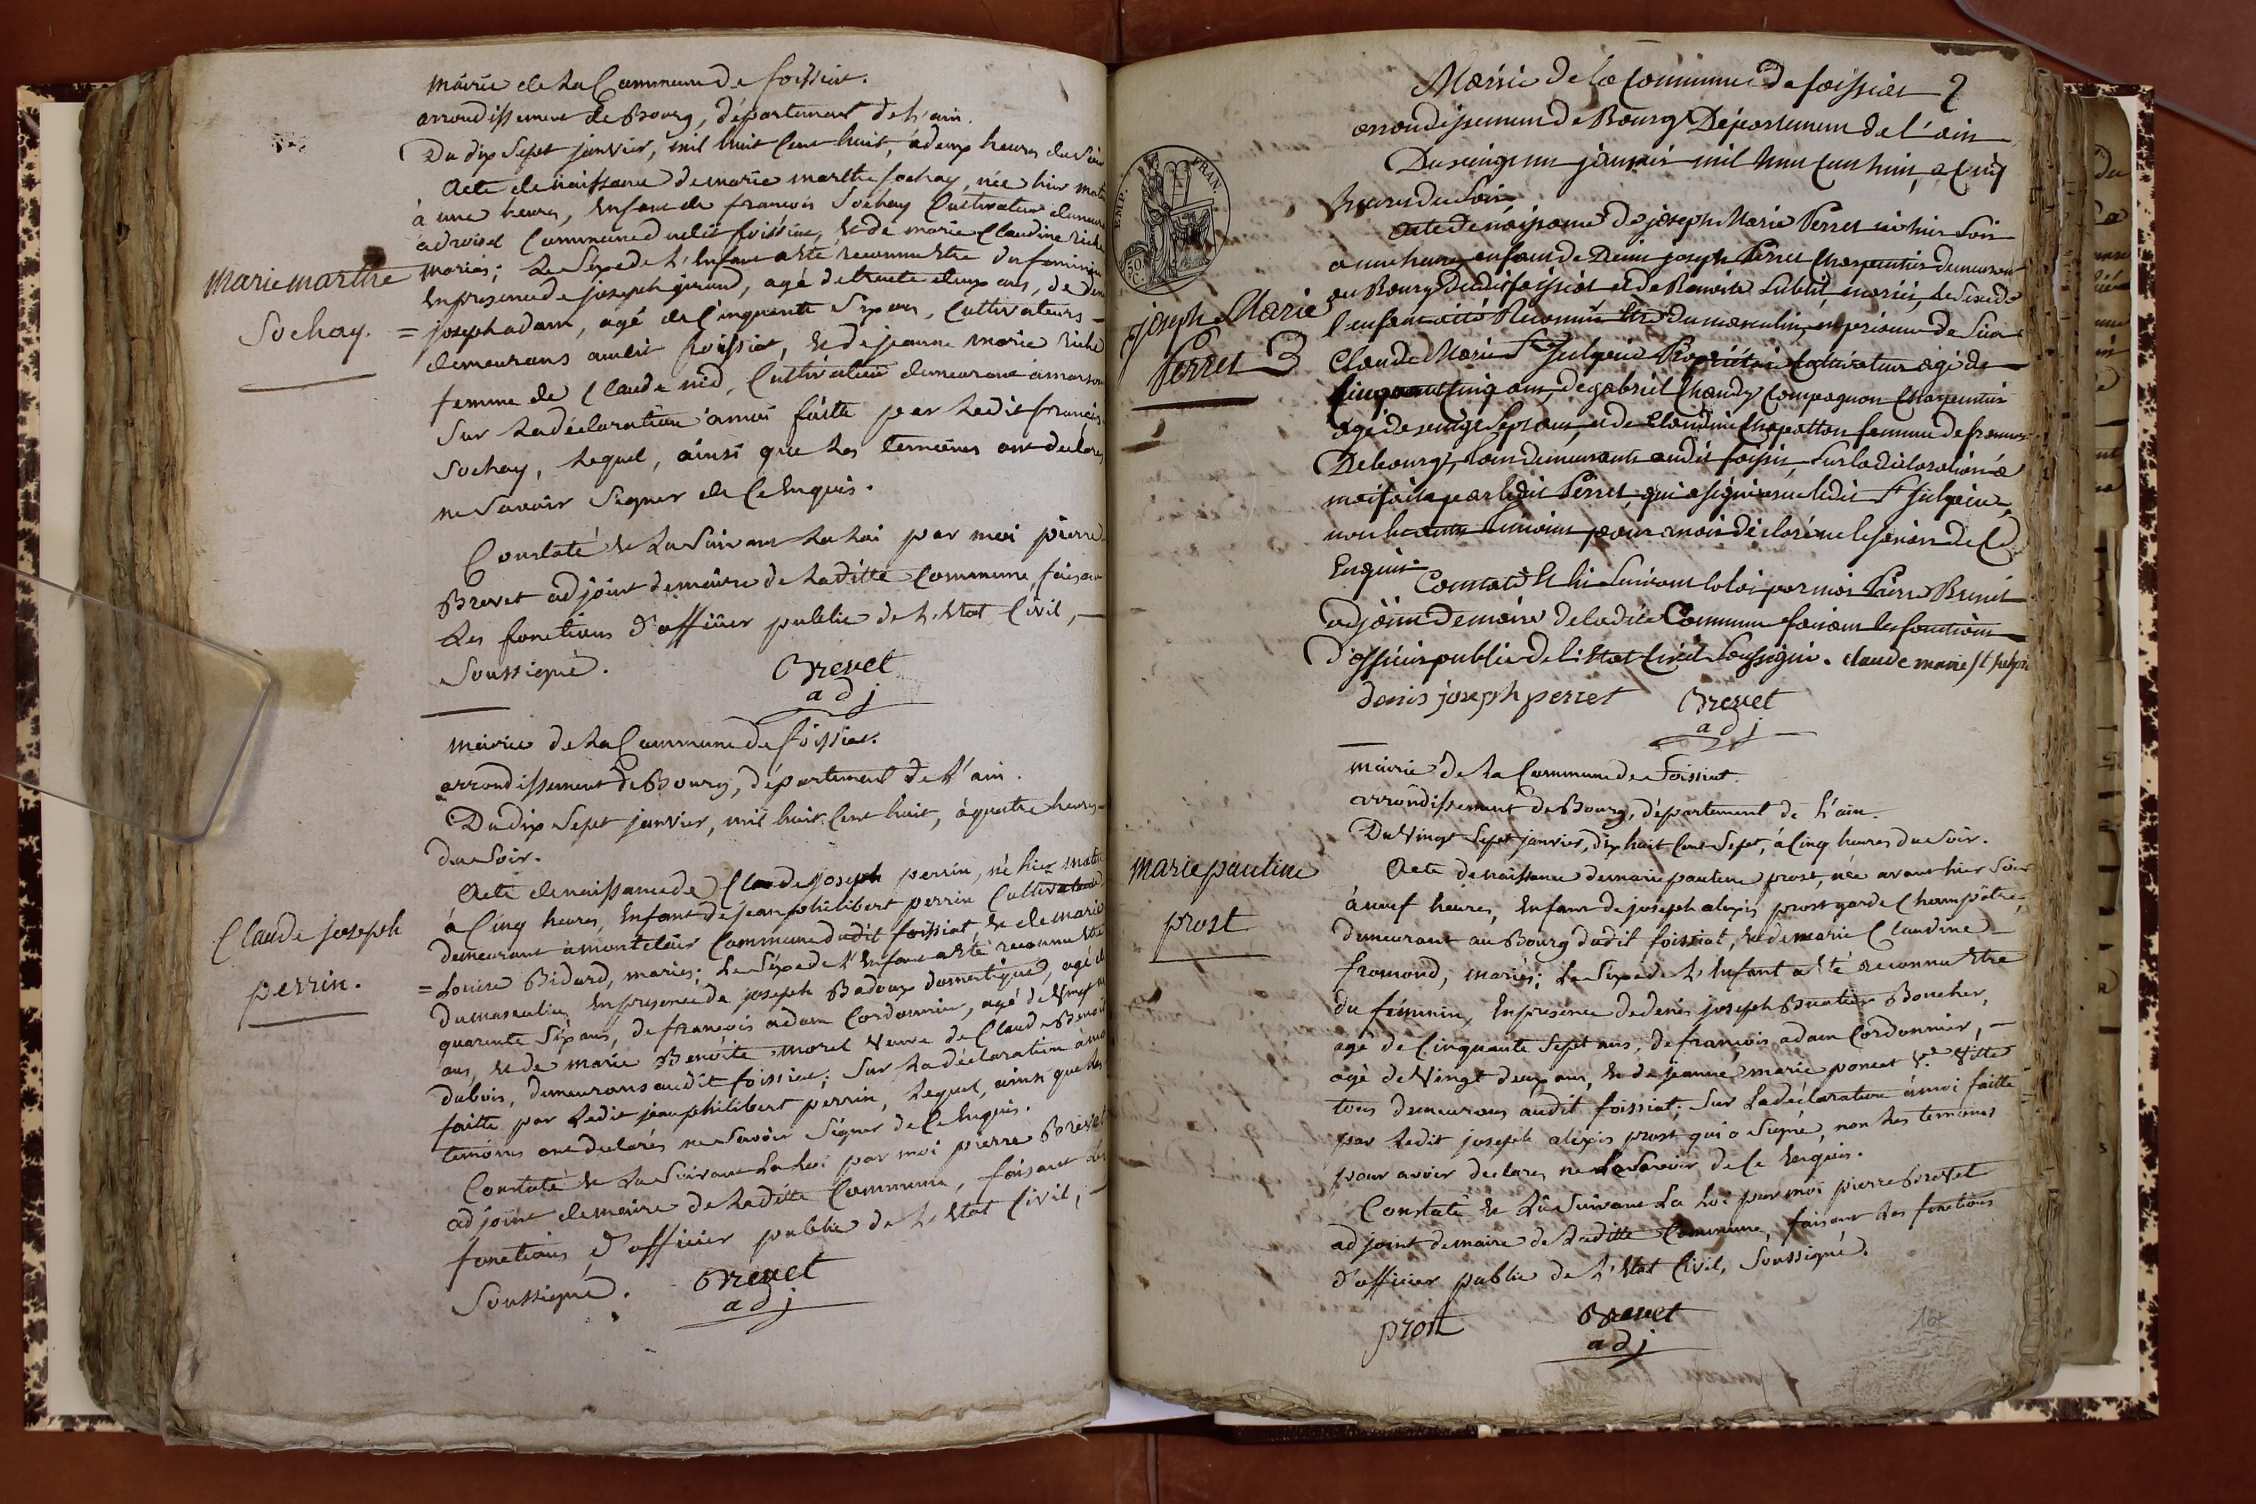 mairie de la Commune de foissiat.
arrondissement de Bourg, département de l'ain.
Du dix sept janvier, mil huit Cent huit, à deux heures du Soir
Acte de naissance de marie marthe Sochay, née hier matin
à une heures, Enfant de francois Sochay Cultivateur demeurant
Commune dudit foissiat, et de marie Claudine riche
mariés; Le Sexe de l'Enfant a eté reconnu Etre du feminin
En presence de joseph giraud, agé de trente deux ans, de
joseph adam, agé de Cinquante Six ans, Cultivateurs
demeurans audit foissiat, et de jeanne marie riche
femme de Claude nid, Cultivateur demeurant à
Sur La déclaration à moi faitte par Ledit francois
Sochay, Lequel, ainsi que Les temoins ont declarés
ne Savoir Signer de Ce Enquis.
Constaté et La Suivant La Loi par moi pierre
Brevet adjoint de maire de Laditte Commune, faisant
Les fonctions d'officier public de L'Etat Civil,
Soussigné.
Brevet
adj
marie marthe
Sochay.
mairie de La Commune de foissiat.
arrondissement de Bourg, département de L'ain.
Du dix Sept janvier, mil huit Cent huit, à quatre heures
du Soir.
Acte de naissance de Claude joseph perrin, né hier matin
à Cinq heures, Enfant de jean philibert perrin Cultivateur
demeurant à montclair Commune dudit foissiat, et de marie
Louise Bidard, mariés; Le Sexe de L'Enfant a Eté reconnu Etre
du masculin, En presence de joseph Badoux domestique, agé de
quarente Six ans, de francois adam Cordonnier, agé de Vingt
ans, et de marie Benoite morel Veuve de Claude Benoit
dubois, demeurans audit foissiat; Sur La déclaration à moi
faitte par Ledit jean philibert perrin, Lequel, ainsi que Les
temoins ont declarés ne Savoir Signer de Ce Enquis.
Constaté et La Suivant La Loi par moi pierre Brevet
adjoint de maire de Laditte Commune, faisant Les
fonctions d'officier public de L'Etat Civil,
Soussigné.
Brevet
adj
Claude joseph
perrin.
Mairie de la Commune de foissiat 2
arrondissement de Bourg Département de l'ain
Du vingt un janvier mil huit Cent huit, a Cinq
heures du Soir
Acte de naissance de joseph Marie Perret né hier Soir
a une heure enfant de Denis joseph Perret Charpentier demeurant
au Bourg dudit foissiat et de Benoite Sublet, mariés, le Sexe de
l'enfant a été Reconnu Etre du masculin, en présence de Sieur
Claude Marie St Julpein Propriétaire Cultivateur agé de
Cinquante Cinq ans, de gabriel Chandy Compagnon Charpentier
agé de vingt Sept ans, et de Claudine Chapatton femme de francois
Debourg, tous demeurants audit foissiat, Sur la déclaration a
moi faite par ledit Perret, qui a signé avec ledit St Julpein,
non les autres temoins pour avoir déclaré ne le savoir de Ce
Enquis
Constaté Et lu Suivant la loi par moi Pierre Brevet
adjoint de maire de ladite Commune faisant les fonctions
d'officier public de l'Etat Civil Soussigné. claude marie St julpin
denis joseph perret
Brevet
adj
EMP. FRAN.
joseph Marie
Perret 3
mairie de La Commune de Foissiat.
arrondissement de Bourg, département de L'ain.
Du Vingt Sept janvier, dix huit Cent Sept, à Cinq heures du Soir.
Acte de naissance de marie pauline prost, née avant hier Soir
à neuf heures, Enfant de joseph alexis prost garde Champêtre,
demeurant au Bourg dudit foissiat, et de marie Claudine
fromond, mariés; Le Sexe de L'Enfant a Eté reconnu Etre
du féminin, En presence de denis joseph Buatier Boucher,
agé de Cinquante Sept ans, de françois adam Cordonnier,
agé de Vingt deux ans, et de jeanne marie poncet Ve Vitte
tous demeurans audit foissiat; Sur La déclaration à moi faitte
par Ledit joseph alexis prost qui a Signé, non Les temoins
pour avoir declarés ne Le Savoir de Ce Enquis.
Constaté et Lu Suivant La Loi par moi pierre brevet
adjoint de maire de Laditte Commune, faisant Les fonctions
d'officier public de L'Etat Civil, Soussigné.
prost
Brevet
adj
marie pauline
prost